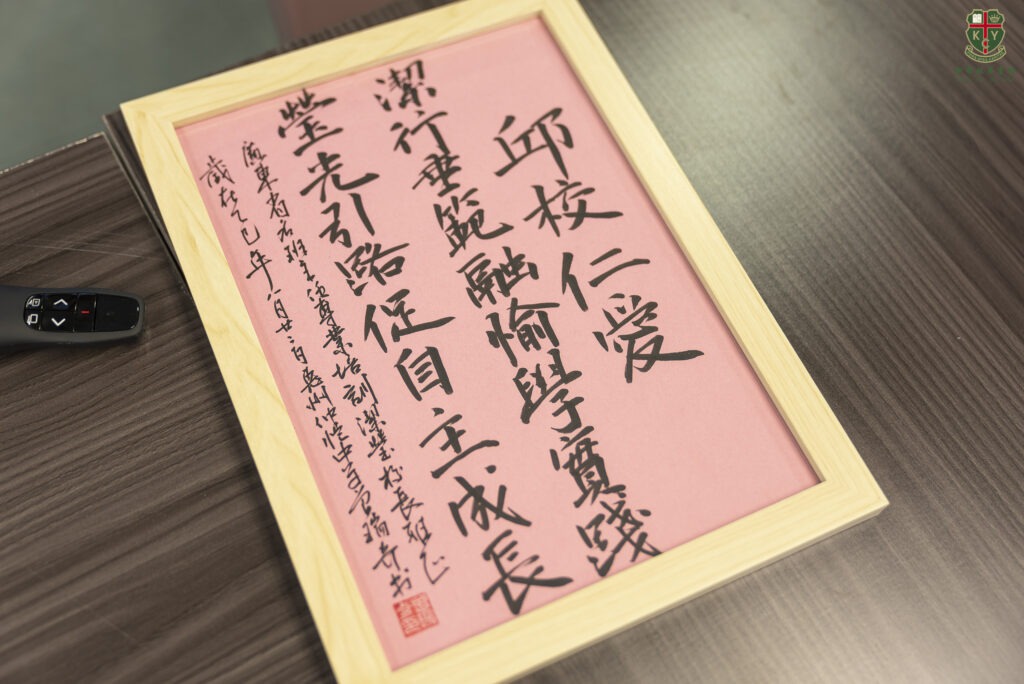 邱校仁愛
潔行垂範融愉學實踐
瑩光引路促自主成長
廣東省名班主任專業培訓潔瑩校長雅正
歲在乙巳年一月廿二日惠州仲愷中學曾瑞奇書
KYC